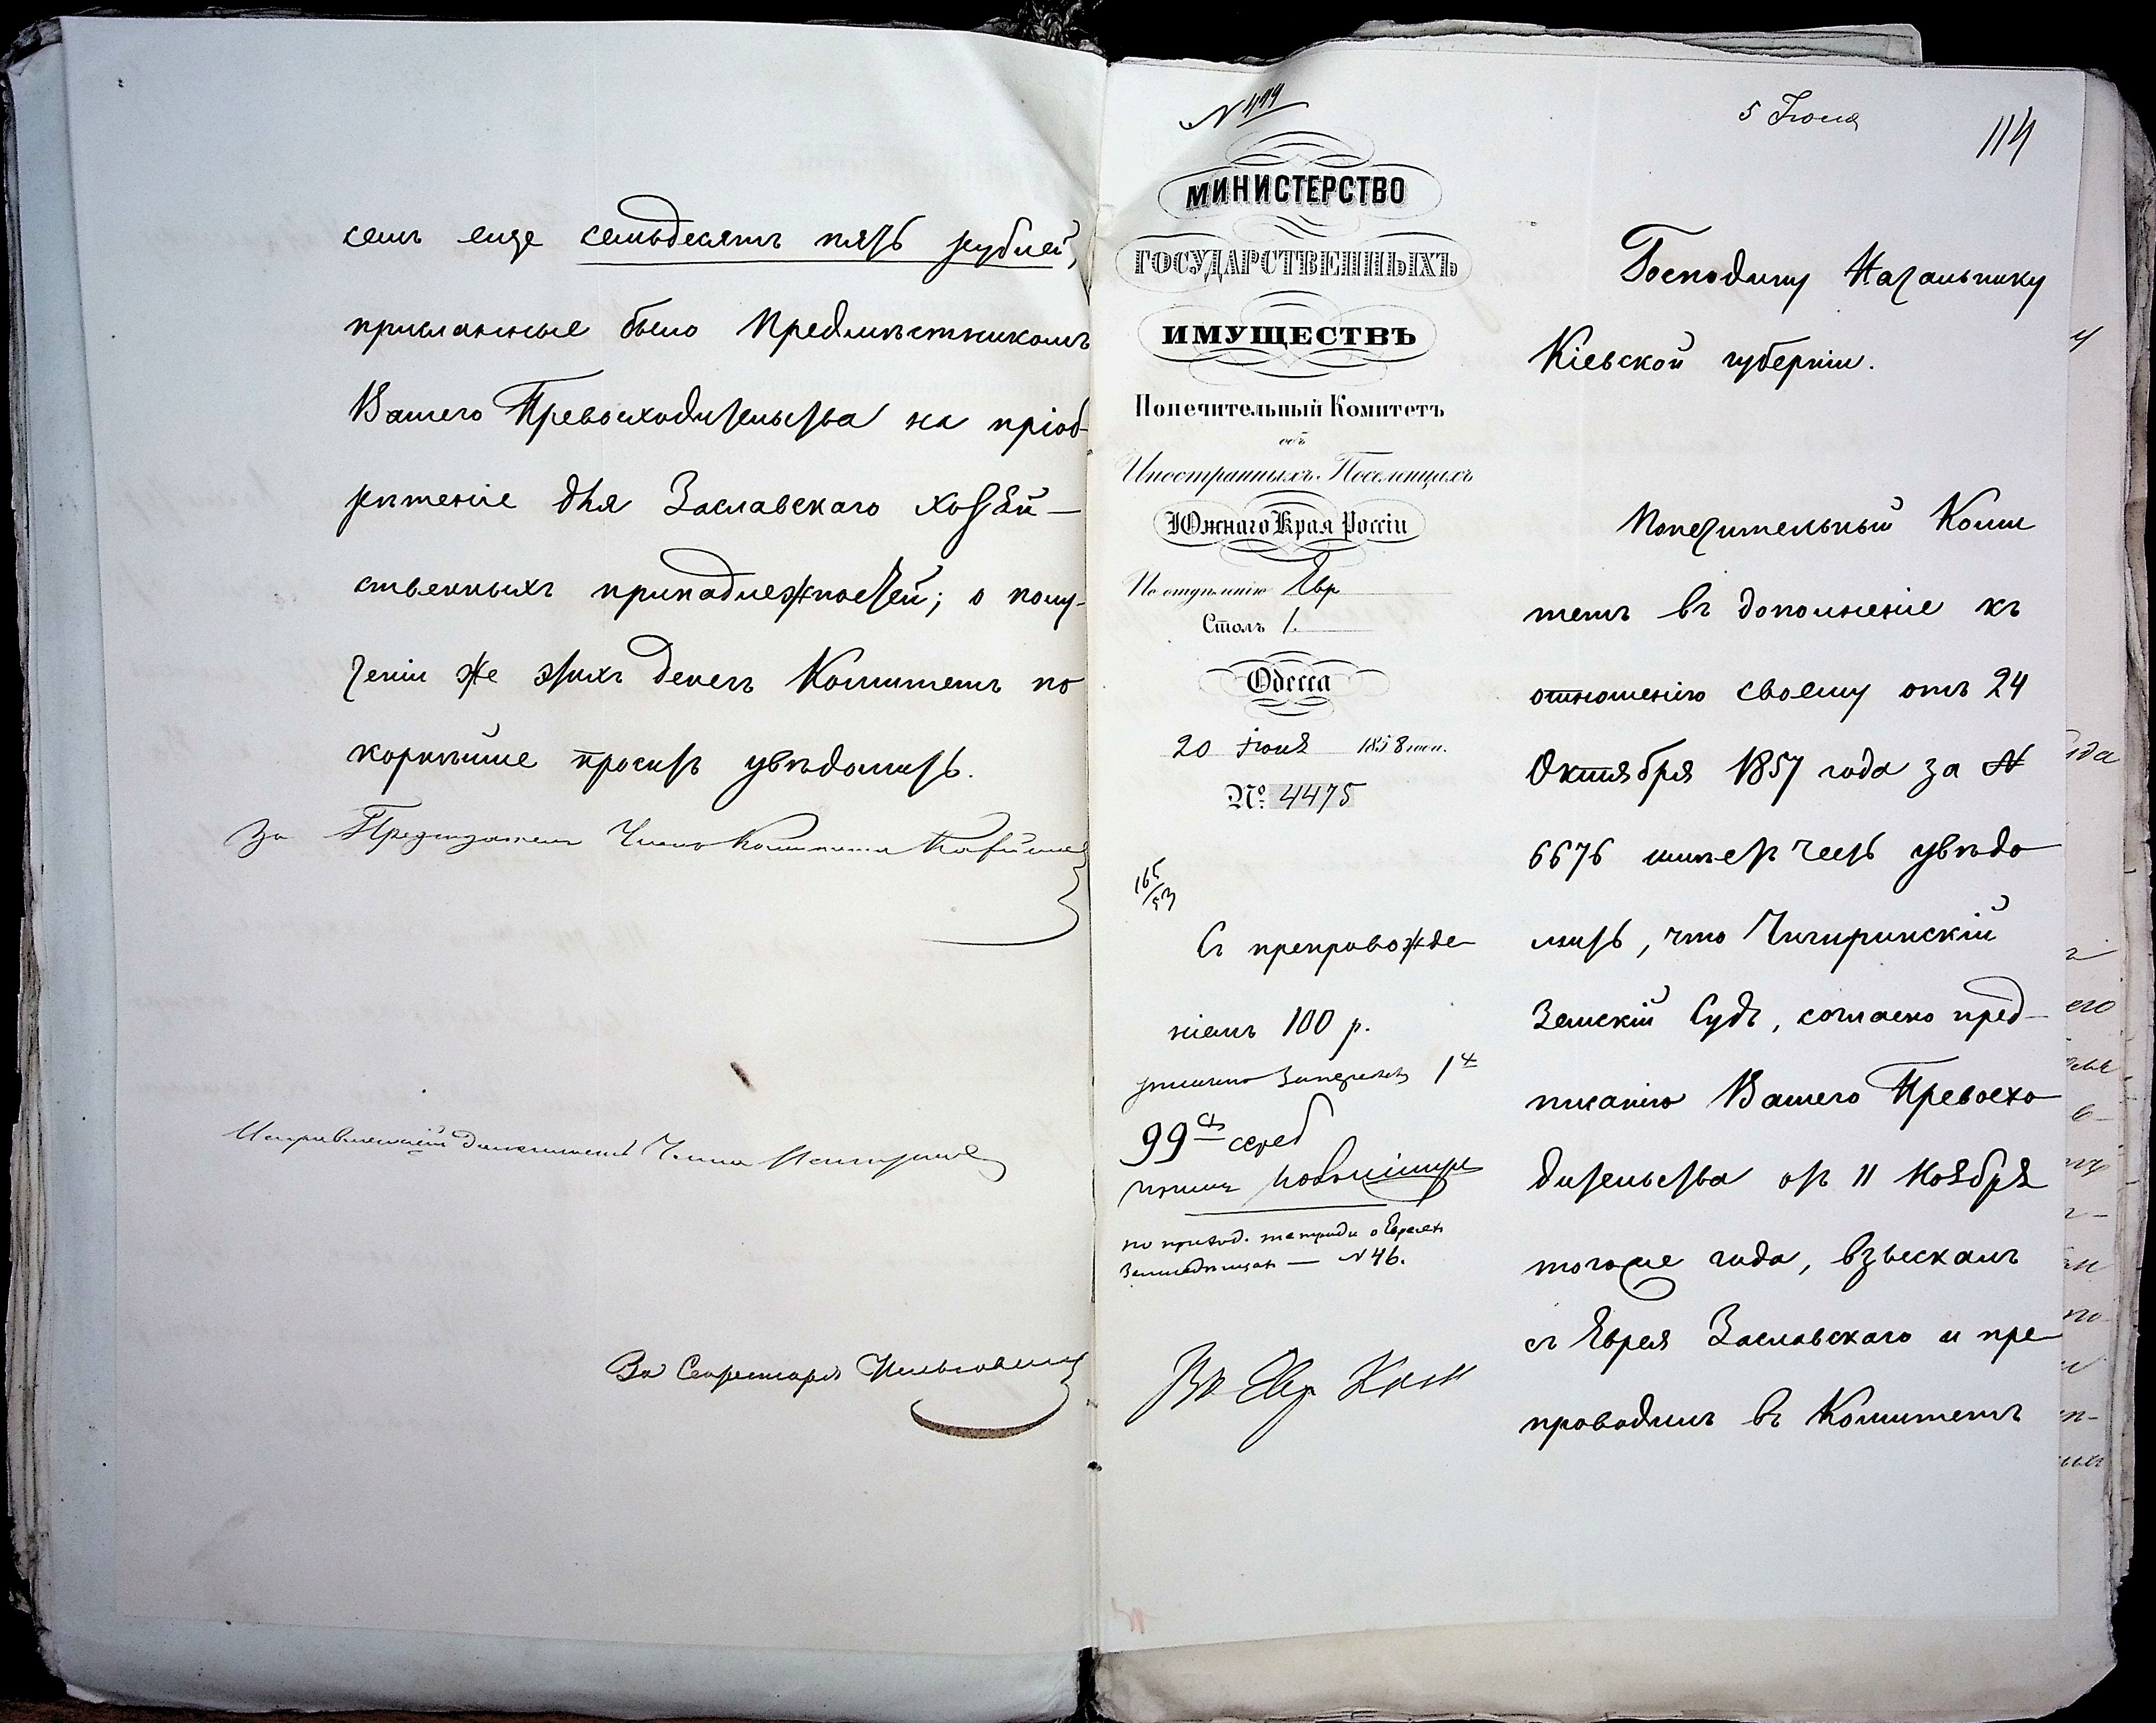 семъ еще семьдесятъ пять рублей,
присланные было Предмѣстникомъ
Вашего Превосходительства на пріоб-
рѣтеніе для Заславскаго хозяй-
ственныхъ принадлежностей; о полу-
ченіи же этихъ денегъ Комитетъ по
корнѣйше проситъ увѣдомить.
За Предсѣдателя Членъ Комитета
Исправляющій должность Члена
За Секретаря
№ 499
МИНИСТЕРСТВО
ГОСУДАРСТВЕННЫХЪ
ИМУЩЕСТВЪ
Попечительный Комитетъ
объ
Иностранныхъ Поселенцахъ
Южнаго Края Россіи
По отдѣленію Евр
Столъ 1.
Одесса
20 іюня 1858 года.
№ 4475
165/53
Съ препровожде-
ніемъ 100 р.
99 сер
по приход. тетради о Евреяхъ
Земледѣльцахъ — № 46.
5 Іюля
114
Господину Начальнику
Кіевской губерніи.
Попечительный Коми
тетъ въ дополненіе къ
отношенію своему отъ 24
Октября 1857 года за №
6676 имѣетъ честь увѣдо
мить, что Чигиринскій
Земскій Судъ, согласно пред-
писанію Вашего Превосхо
дительства отъ 11 Ноября
тогоже года, взыскалъ
съ Еврея Заславскаго и пре
проводилъ въ Комитетъ